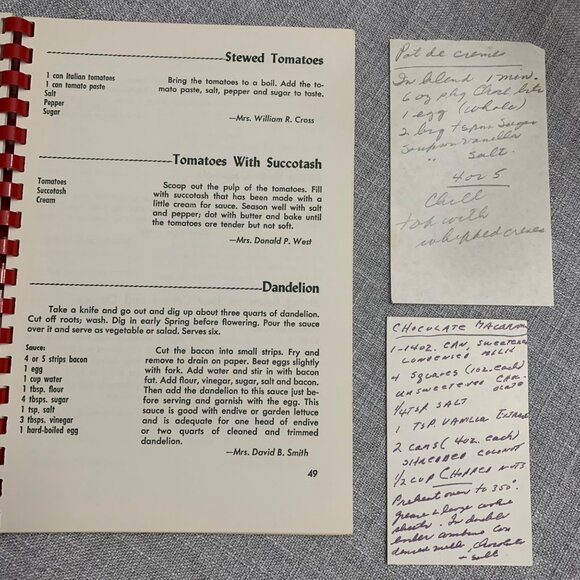 Stewed Tomatoes
1 can Italian tomatoes
1 can tomato paste
Salt
Pepper
Sugar
Bring the tomatoes to a boil. Add the to-
mato paste, salt, pepper and sugar to taste.
—Mrs. William R. Cross
Tomatoes With Succotash
Tomatoes
Succotash
Cream
Scoop out the pulp of the tomatoes. Fill
with succotash that has been made with a
little cream for sauce. Season well with salt
and pepper; dot with butter and bake until
the tomatoes are tender but not soft.
—Mrs. Donald P. West
Dandelion
Take a knife and go out and dig up about three quarts of dandelion.
Cut off roots; wash. Dig in early Spring before flowering. Pour the sauce
over it and serve as vegetable or salad. Serves six.
Sauce:
4 or 5 strips bacon
1 egg
1 cup water
1 tbsp. flour
4 tbsps. sugar
1 tsp. salt
3 tbsps. vinegar
1 hard-boiled egg
Cut the bacon into small strips. Fry and
remove to drain on paper. Beat eggs slightly
with fork. Add water and stir in with bacon
fat. Add flour, vinegar, sugar, salt and bacon.
Then add the dandelion to this sauce just be-
fore serving and garnish with the egg. This
sauce is good with endive or garden lettuce
and is adequate for one head of endive
or two quarts of cleaned and trimmed
dandelion.
—Mrs. David B. Smith
49
Pot de creme
In blend 1 min.
6 oz pkg Choc bits
1 egg (whole)
2 big tspns Sugar
vanilla
" salt.
4 or 5
Chill
top with
whipped creme
CHOCOLATE MACAROONS
1-14 OZ. CAN, SWEETENED
CONDENSED MILK
4 SQUARES (1 OZ. EACH)
UNSWEETENED CHOC-
OLATE
1/4 TSP SALT
1 TSP VANILLA EXTRACT
2 CANS (4 OZ. EACH)
SHREDDED COCONUT
1/2 CUP CHOPPED NUTS
Preheat oven to 350°.
Grease 2 large cookie
sheets. In double
boiler combine con
densed milk, chocolate
+ salt.